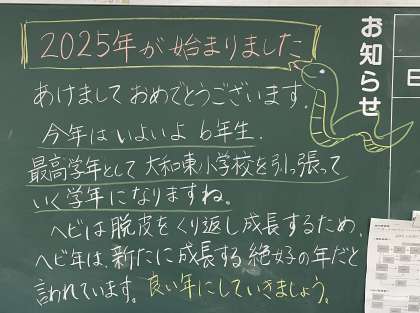 2025年が始まりました
お知らせ
あけましておめでとうございます。
今年はいよいよ6年生。
最高学年として大和東小学校を引っ張って
いく学年になりますね。
ヘビは脱皮をくり返し成長するため、
ヘビ年は、新たに成長する絶好の年だと
言われています。良い年にしていきましょう。